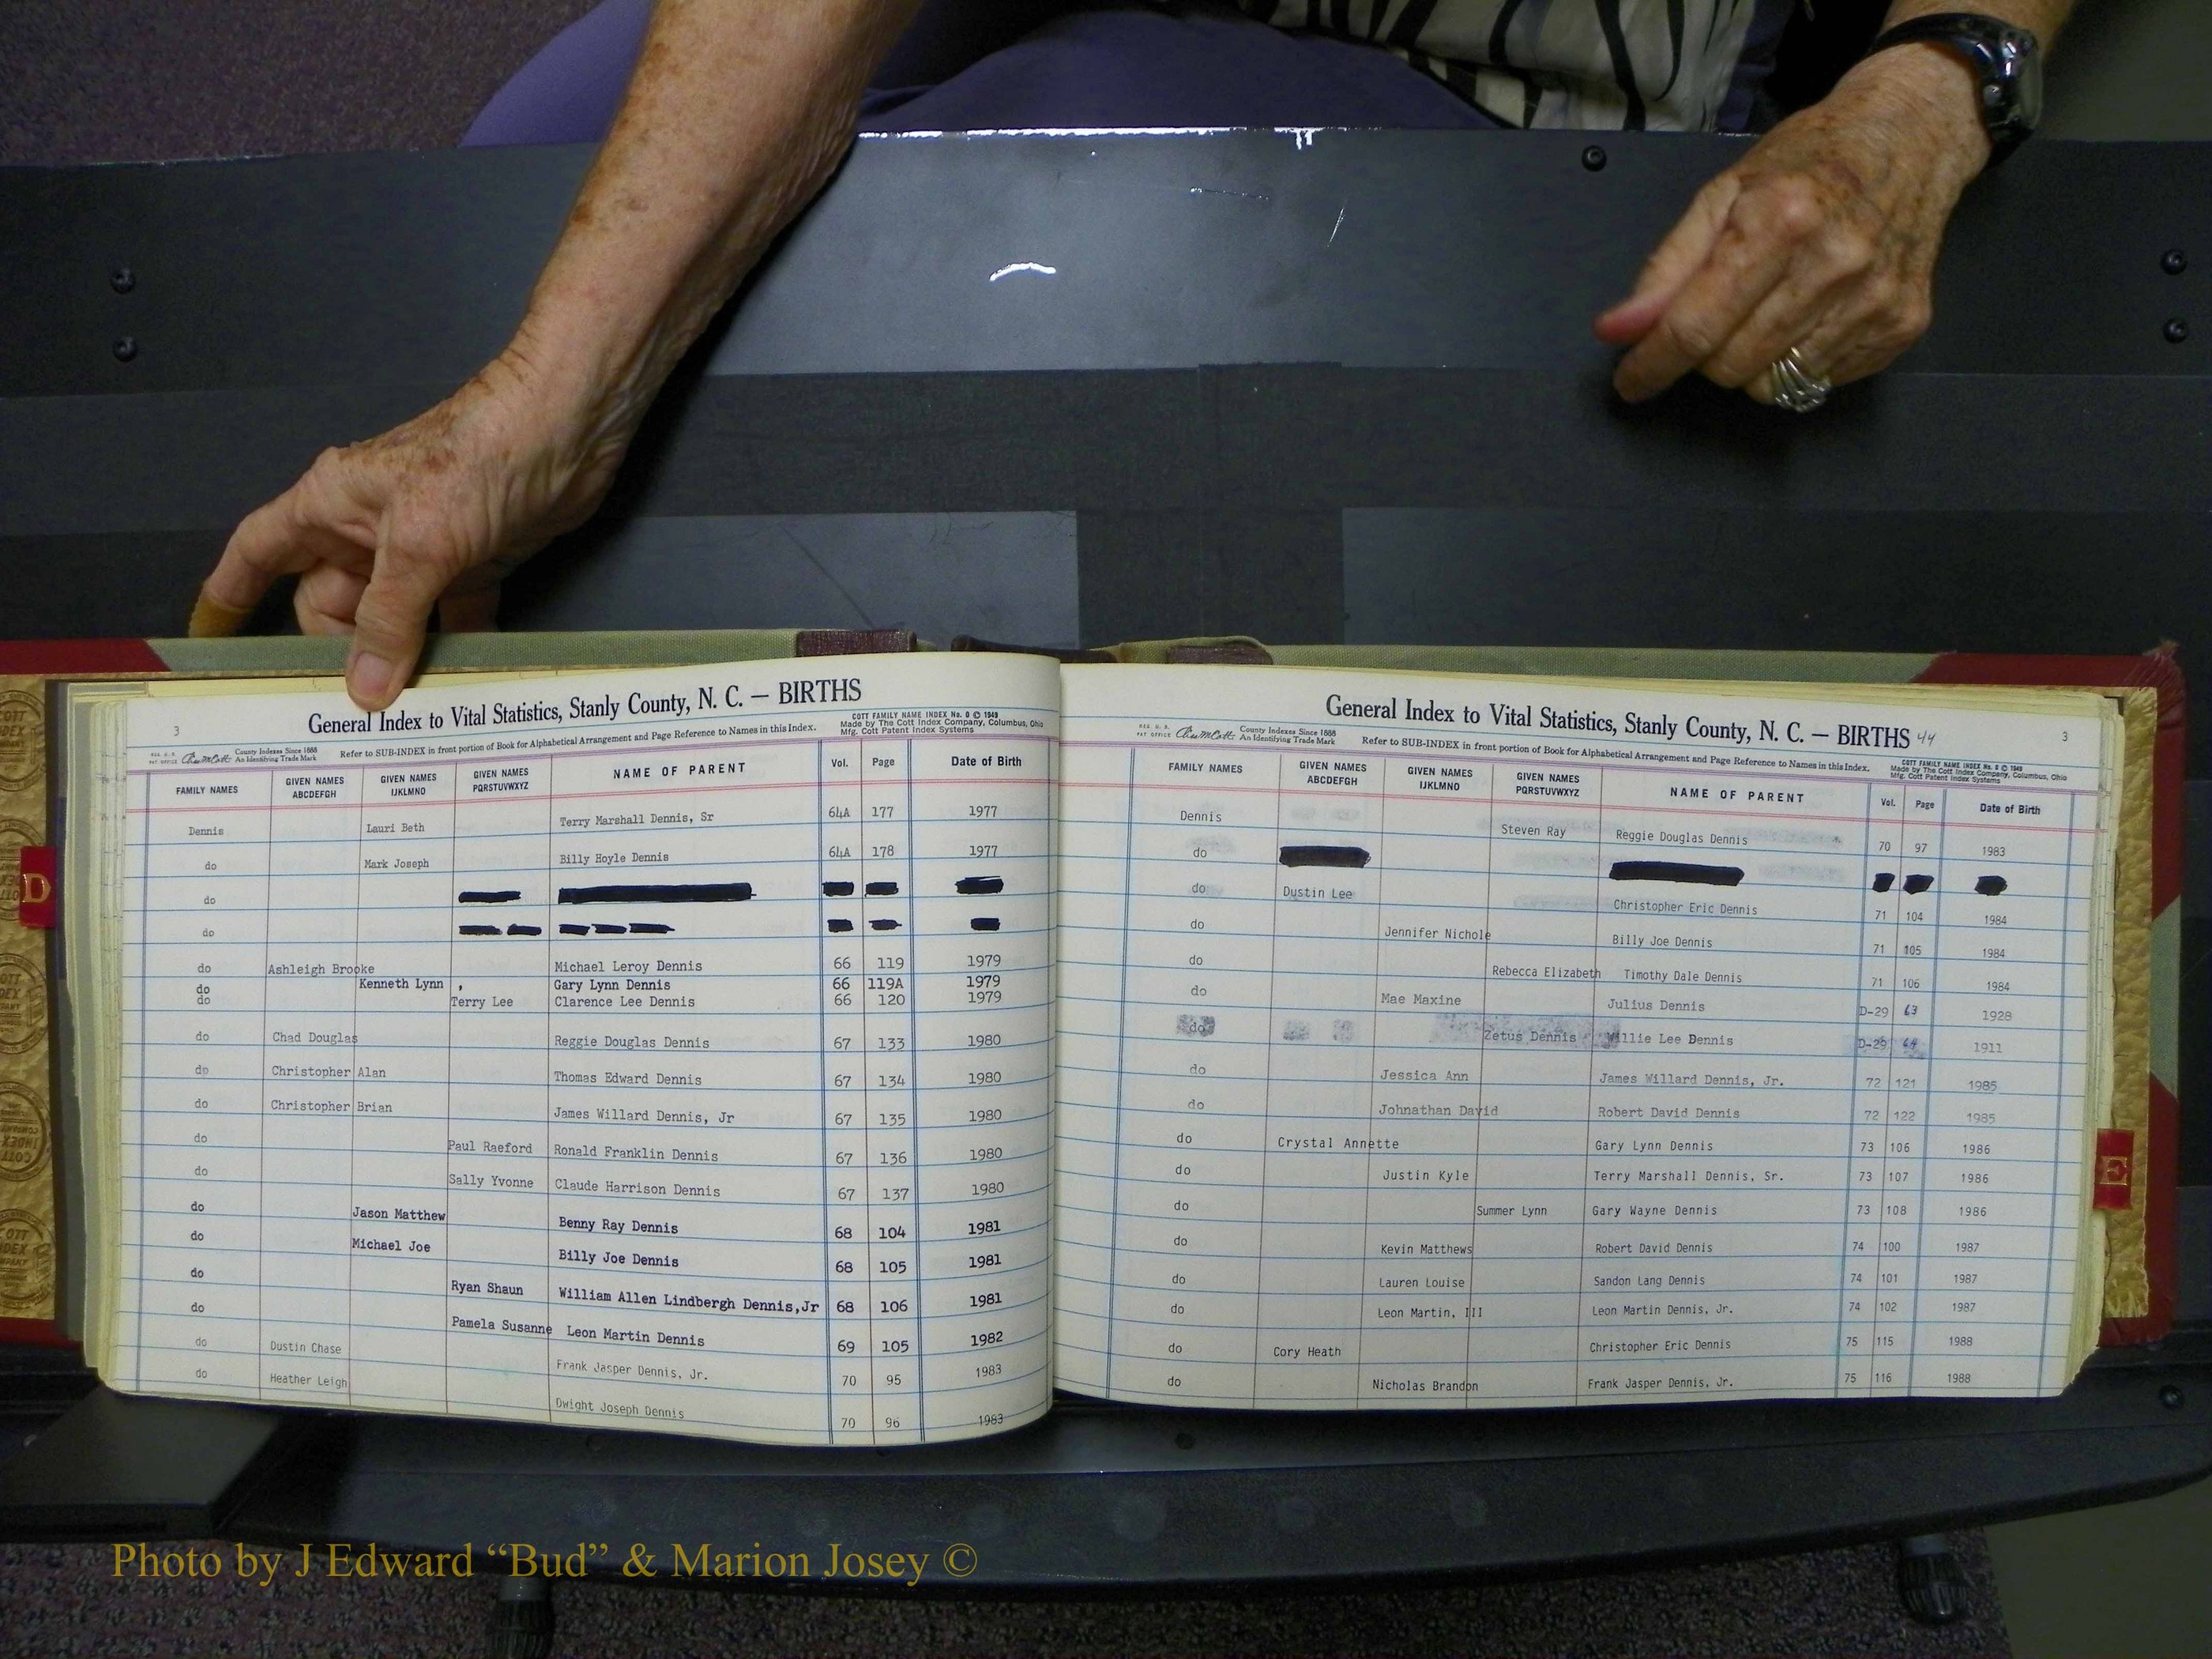 3
General Index to Vital Statistics, Stanly County, N. C. — BIRTHS
COTT FAMILY NAME INDEX No. 0 © 1949
Made by The Cott Index Company, Columbus, Ohio
Mfg. Cott Patent Index Systems
County Indexes Since 1888
An Identifying Trade Mark
Refer to SUB-INDEX in front portion of Book for Alphabetical Arrangement and Page Reference to Names in this Index.
FAMILY NAMES GIVEN NAMES ABCDEFGH GIVEN NAMES IJKLMNO GIVEN NAMES PQRSTUVWXYZ NAME OF PARENT Vol. Page Date of Birth
Dennis Lauri Beth Terry Marshall Dennis, Sr 64A 177 1977
do Mark Joseph Billy Hoyle Dennis 64A 178 1977
do
do
do Ashleigh Brooke Michael Leroy Dennis 66 119 1979
do Kenneth Lynn , Gary Lynn Dennis 66 119A 1979
do Terry Lee Clarence Lee Dennis 66 120 1979
do Chad Douglas Reggie Douglas Dennis 67 133 1980
do Christopher Alan Thomas Edward Dennis 67 134 1980
do Christopher Brian James Willard Dennis, Jr 67 135 1980
do Paul Raeford Ronald Franklin Dennis 67 136 1980
do Sally Yvonne Claude Harrison Dennis 67 137 1980
do Jason Matthew Benny Ray Dennis 68 104 1981
do Michael Joe Billy Joe Dennis 68 105 1981
do Ryan Shaun William Allen Lindbergh Dennis,Jr 68 106 1981
do Pamela Susanne Leon Martin Dennis 69 105 1982
do Dustin Chase Frank Jasper Dennis, Jr. 70 95 1983
do Heather Leigh Dwight Joseph Dennis 70 96 1983
General Index to Vital Statistics, Stanly County, N. C. — BIRTHS 44
3
County Indexes Since 1888
An Identifying Trade Mark
Refer to SUB-INDEX in front portion of Book for Alphabetical Arrangement and Page Reference to Names in this Index.
COTT FAMILY NAME INDEX No. 0 © 1949
Made by The Cott Index Company, Columbus, Ohio
Mfg. Cott Patent Index Systems
FAMILY NAMES GIVEN NAMES ABCDEFGH GIVEN NAMES IJKLMNO GIVEN NAMES PQRSTUVWXYZ NAME OF PARENT Vol. Page Date of Birth
Dennis Steven Ray Reggie Douglas Dennis 70 97 1983
do
do Dustin Lee Christopher Eric Dennis 71 104 1984
do Jennifer Nichole Billy Joe Dennis 71 105 1984
do Rebecca Elizabeth Timothy Dale Dennis 71 106 1984
do Mae Maxine Julius Dennis D-29 63 1928
do Zetus Dennis Willie Lee Dennis D-29 64 1911
do Jessica Ann James Willard Dennis, Jr. 72 121 1985
do Johnathan David Robert David Dennis 72 122 1985
do Crystal Annette Gary Lynn Dennis 73 106 1986
do Justin Kyle Terry Marshall Dennis, Sr. 73 107 1986
do Summer Lynn Gary Wayne Dennis 73 108 1986
do Kevin Matthews Robert David Dennis 74 100 1987
do Lauren Louise Sandon Lang Dennis 74 101 1987
do Leon Martin, III Leon Martin Dennis, Jr. 74 102 1987
do Cory Heath Christopher Eric Dennis 75 115 1988
do Nicholas Brandon Frank Jasper Dennis, Jr. 75 116 1988
D
E
Photo by J Edward “Bud” & Marion Josey ©